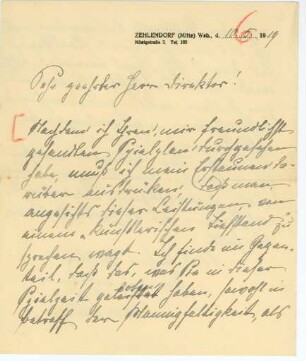 ZEHLENDORF (Mitte) Wsb., d. 1919
Königstraße 3. Tel. 100
6
Sehr geehrter Herr Direktor!
[Nachdem ich Ihren, mir freundlichst
gesandten Spielplan durchgesehen
habe, muß ich mein Erstaunen da-
rüber ausdrücken, dass man
angesichts dieser Leistungen, von
einem "künstlerischen Tiefstand" zu
sprechen wagt. Ich finde im Gegen-
teil, daß das, was Sie in dieser
Spielzeit geleistet haben, sowohl in
betreff der Mannigfaltigkeit, als